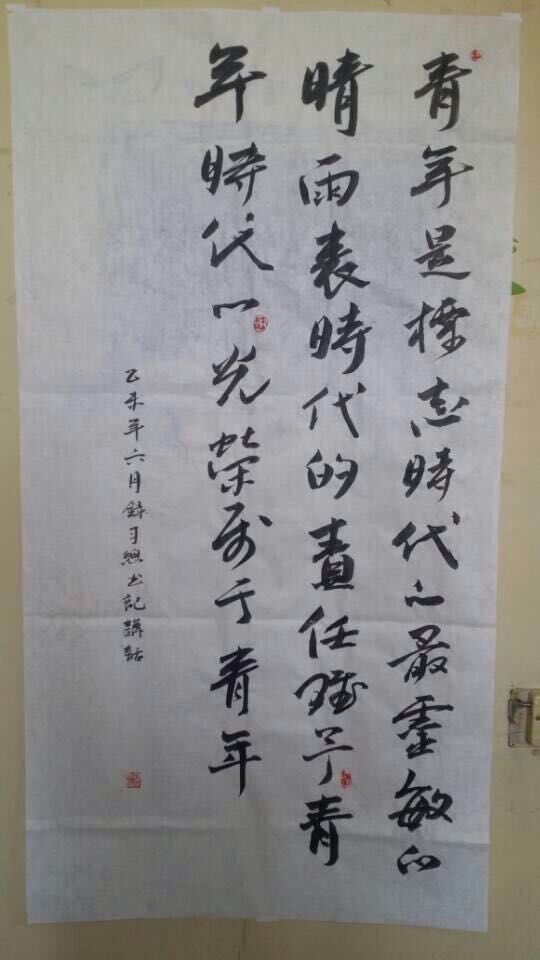 青年是標志時代的最靈敏的
晴雨表時代的責任賦予青
年時代的光榮屬于青年
乙未年六月錄习總书記講話